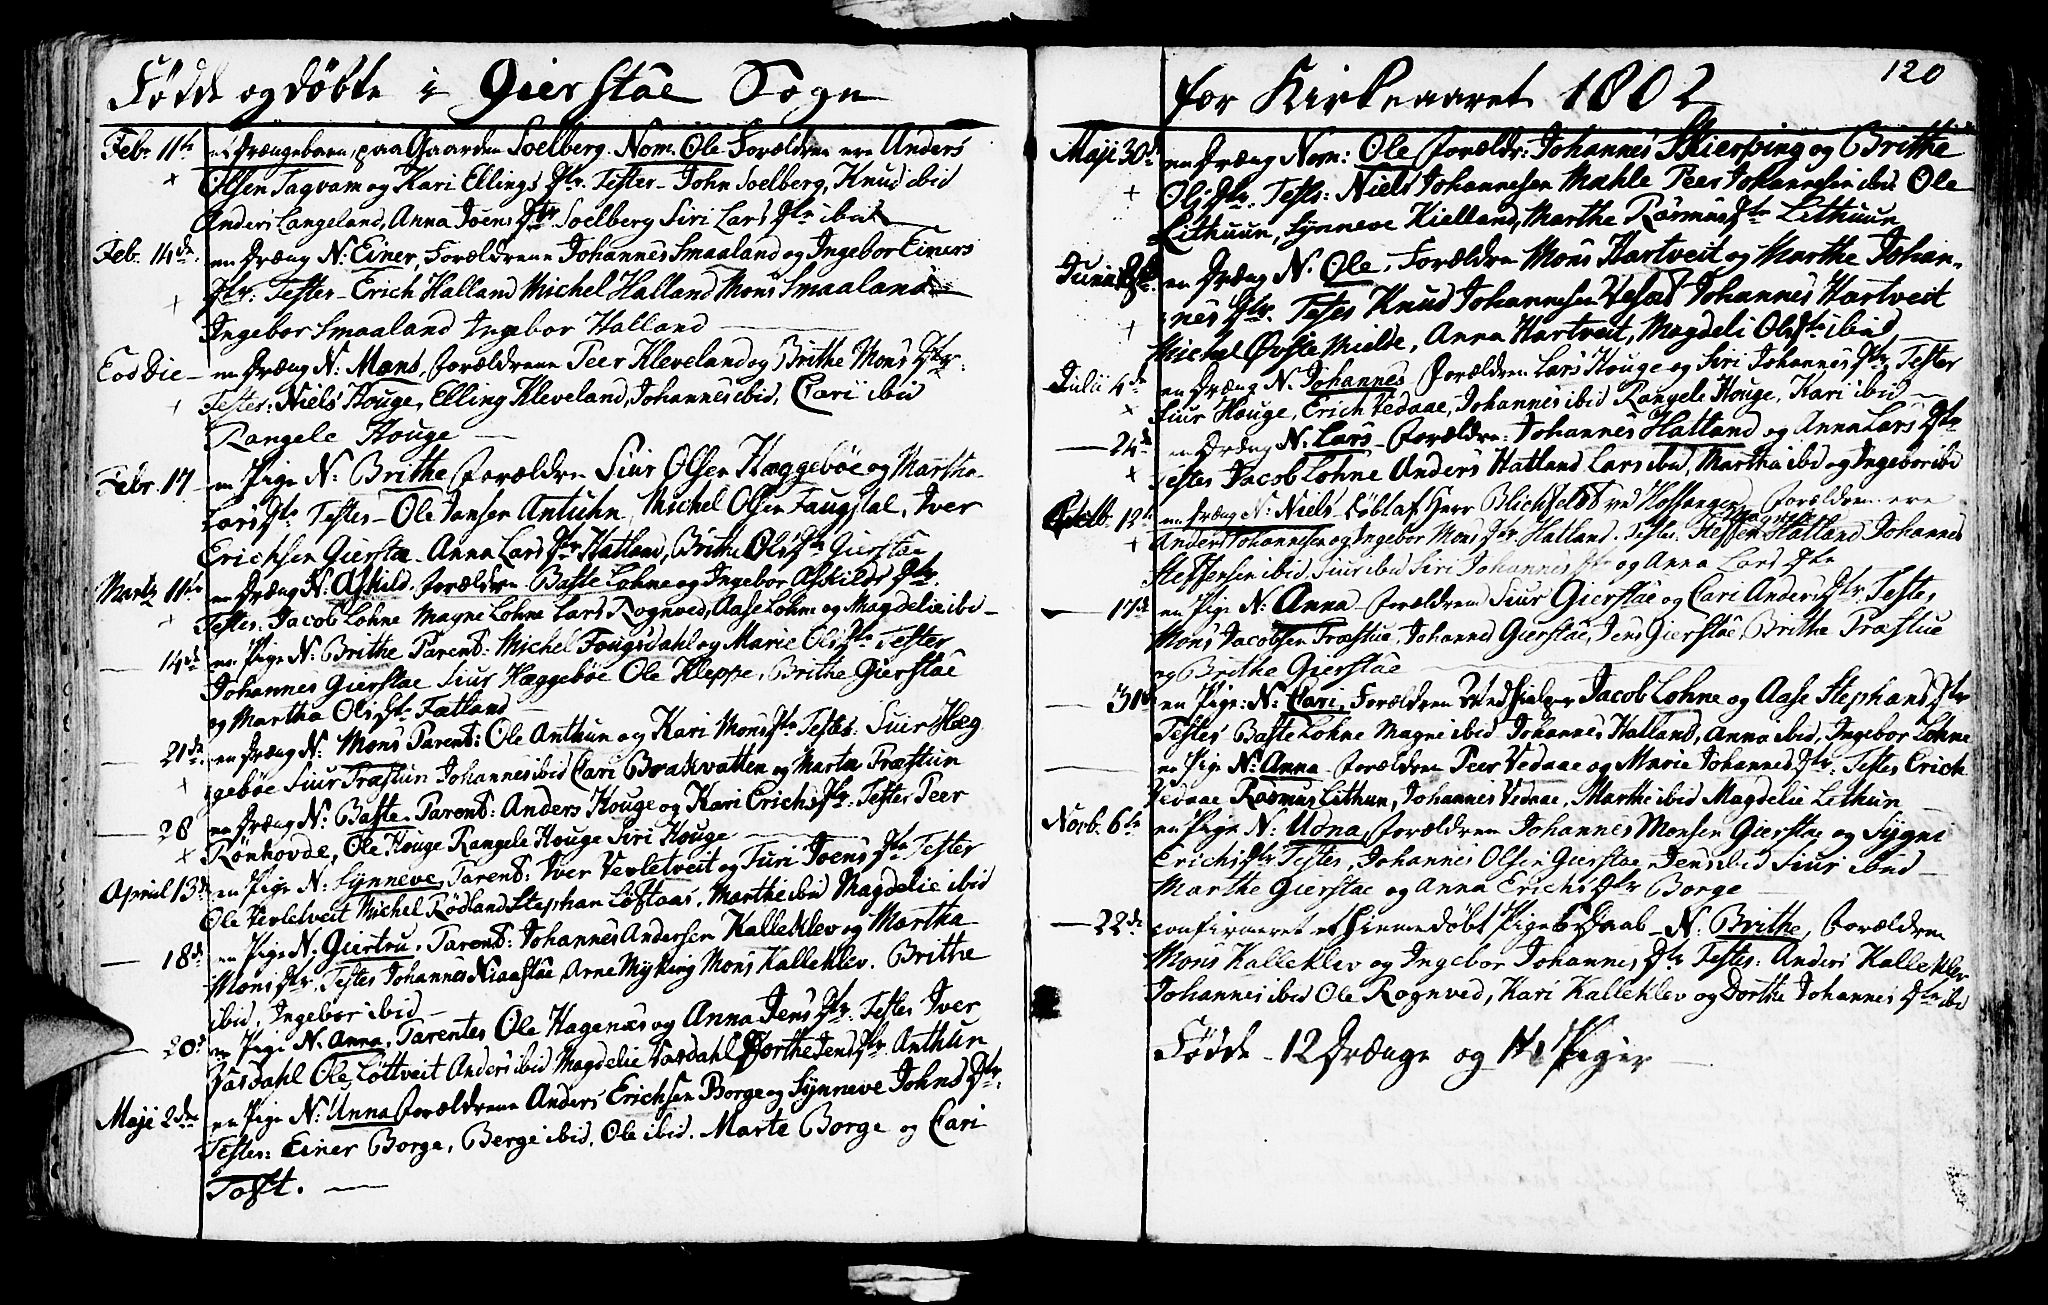 Fødde og døbte i Gierstae Sogn
Febr 11te et Drængebarn, paa Gaarden Soelberg. Nom. Ole Forældrene ere Anders
Olsen Tagvam og Kari Ellings Dtr. Testes - John Soelberg, Knud ibid
Anders Langeland, Anna Joens Dtr Soelberg Siri Lars Dtr ibid
Feb. 14de en Dræng N: Einer, Forældrene Johannes Smaaland og Ingebor Einers
Dtr: Testes - Erich Halland Michel Halland Mons Smaaland
Ingebor Smaaland Ingebor Halland
Eod Die - en Dræng N: Mons, Forældrene Peer Kleveland og Brithe Mons Dtr.
Testes: Niels Houge, Elling Kleveland, Johannes ibid, Cari ibid
Rangele Houge
Febr. 17 en Pige N: Brithe Forældre Siur Olsen Hæggebøe og Martha
Lars Dtr Testes - Ole Jansen Antuhn, Michel Olsen Faugstal, Iver
Erichsen Gierstae - Anna Lars Dtr Hatland, Brithe Ols Dtr Gierstae
Marty 11te en Dræng N: Askild. Forældre - Baste Lohne og Ingebor Askilds Dtr.
Testes: Jacob Lohne Magne Lohne Lars Rognved, Aase Lohne og Magdelie ibid -
- 14de en Pige N: Brithe Parent: Michel Fougsdahl og Marie Olis Dtr Testes
Johannes Gierstae Siur Hæggebøe Ole Kleppe, Brithe Gierstae
og Martha Olis Dtr Fatland
- 21de en Dræng N: Mons Parent: Ole Anthun og Kari Mons Dtr Testes: Siur Hæg
gebøe Siur Træstun Johannes ibid Cari Brakvatten og Marta Træstun
- 28 en Dræng N: Baste - Parent: Anders Houge og Kari Erichs Dtr: Testes Peer
Rønhovde, Ole Houge Rangele Houge Siri Houge
April 13de en Pige N: Synneve, Parent: Iver Verletveit og Turi Joens Dtr Testes
Ole Verletveit Michel Rødland Stephan Løftaas, Marthe ibid Magdelie ibid
- 18de en Pige N: Giertru. Parent: Johannes Andersen Kalleklev og Martha
Mons Dtr. Testes Johannes Niaastae, Arne Myking Mons Kalleklev. Brithe
ibid, Ingebor ibid -
- 20de en Pige N. Anna, Parentes Ole Hagenæs og Anna Jens Dtr: Testes Iver
Vasdahl Ole Løttveit Anders ibid Magdelie Vasdahl Dorthe Jens Dtr Anthun
Maji 2den en Pige N: Unna Forældrene Anders Erichsen Borge og Synneve Johns Dtr.
Testes: Einer Borge, Berge ibid. Ole ibid. Marte Borge og Cari
Toft.
for Kirkeaaret 1802
120
Maji 30de en Dræng Nom: Ole Forældr: Johannes Skierping og Brithe
Olis Dtr. Testes: Niels Johannesen Mahle Peer Johannesen ibid Ole
Lithuun, Synneve Kielland, Marthe Rasmus Dtr Lithuun
en Dræng N. Ole, Forældre Mons Hartveit og Marthe Johan-
nes Dtr. Testes Knud Johannesen Johannes Hartveit
Michel Anna Hartveit, Magdeli Ols Dtr ibid
Julii 4de en Dræng N. Johannes Forældre Lars Houge og Siri Johannes Dtr, Testes
Siur Houge, Erich Vedaae, Johannes ibid Rangele Houge, Kari ibid
- 24de en Dræng N: Lars - Forældre: Johannes Hatland og Anna Lars Dtr
Testes Jacob Lohne Anders Hatland Lars ibid, Martha ibid og Ingebor ibid
12te en Dræng N: Niels - døbt af Herr Blichfeldt ved Hossanger, Forældrene ere
Anders Johannesen og Ingebor Mons Dtr Hatland. Testes Steffen Hatland Johannes
Steffensen ibid, Siur ibid Siri Johannes Dtr og Anna Lars Dtr
- 17de en Pige N: Anna - Forældrene Siur Gierstae og Cari Anders Dtr: Testes
Mons Jacobsen Træstue, Johannes Gierstae, Jens Gierstae, Brithe Træstue
og Brithe Gierstae
- 31te en Pige: N: Cari, Forældrene Medhielper Jacob Lohne og Aase Stephans Dtr
Testes Baste Lohne Magne ibid Johannes Hatland, Anna ibid, Ingebor Lohne
- en Pige N: Anna Forældre Peer Vedaae og Marie Johannes Dtr: Testes Erich
Vedaae Rasmus Lithun, Johannes Vedaae, Marthe ibid Magdelie Lethun
Novb. 6te en Pige N: Udna, Forældrene Johannes Monsen Gierstae og Sygni
Erichs Dtr Testes, Johannes Olsen Gierstae, Jens ibid Siur ibid -
Marthe Gierstae og Anna Erichs Dtr Borge
- 22de confirmeret et hiemmedøbt Pigeb: Daab - N: Brithe, Forældrene
Mons Kalleklev og Ingebor Johannes Dtr Testes: Anders Kalleklev
Johannes ibid Ole Rognved, Kari Kalleklev og Dorthe Johannes Dtr ibid
Fødde - 12 Drænge og Piger